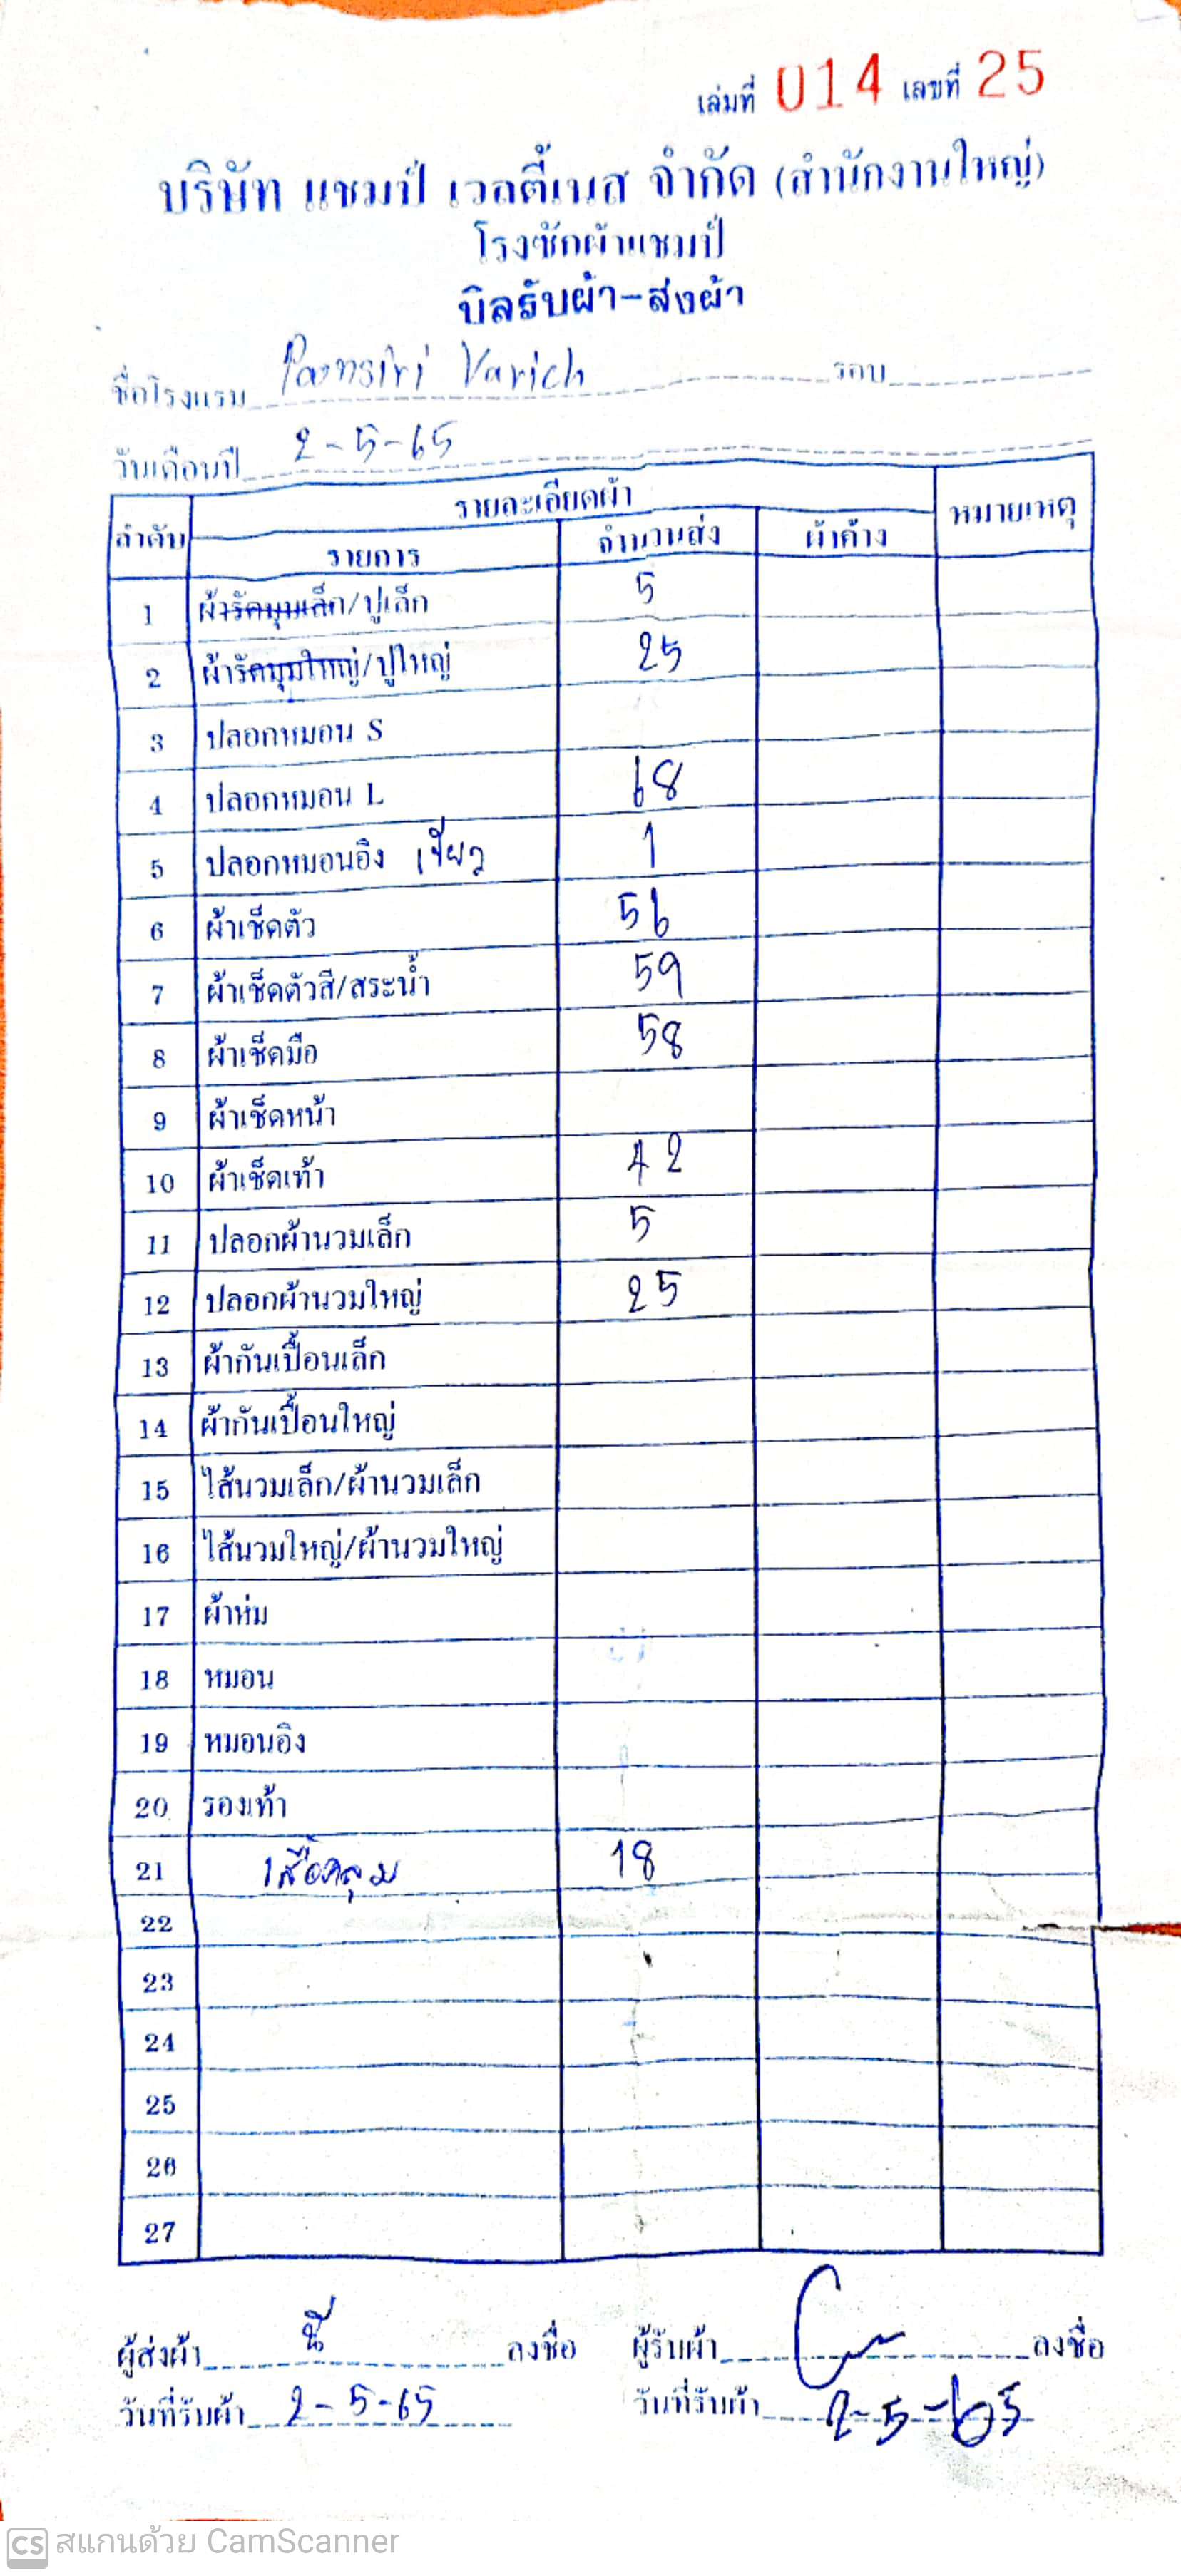 เล่มที่ 014 เลขที่ 25
บริษัท แชมป์ เวลตี้เนส จำกัด (สำนักงานใหญ่)
โรงซักผ้าแชมป์
บิลรับผ้า-ส่งผ้า
ชื่อโรงแรม Varich รอบ
วันเดือนปี 2-5-65
ลำดับ รายละเอียดผ้า หมายเหตุ
รายการ จำนวนส่ง ผ้าค้าง
1 ผ้ารัดมุมเล็ก/ปูเล็ก 5
2 ผ้ารัดมุมใหญ่/ปูใหญ่ 25
3 ปลอกหมอน S
4 ปลอกหมอน L 68
5 ปลอกหมอนอิง 1
6 ผ้าเช็ดตัว 56
7 ผ้าเช็ดตัวสี/สระน้ำ 59
8 ผ้าเช็ดมือ 58
9 ผ้าเช็ดหน้า
10 ผ้าเช็ดเท้า 42
11 ปลอกผ้านวมเล็ก 5
12 ปลอกผ้านวมใหญ่ 25
13 ผ้ากันเปื้อนเล็ก
14 ผ้ากันเปื้อนใหญ่
15 ไส้นวมเล็ก/ผ้านวมเล็ก
16 ไส้นวมใหญ่/ผ้านวมใหญ่
17 ผ้าห่ม
18 หมอน
19 หมอนอิง
20 รองเท้า
21 เสื้อคลุม 18
22
23
24
25
26
27
ผู้ส่งผ้า ลงชื่อ ผู้รับผ้า ลงชื่อ
วันที่รับผ้า 2-5-65 วันที่รับผ้า 2-5-65
CS สแกนด้วย CamScanner